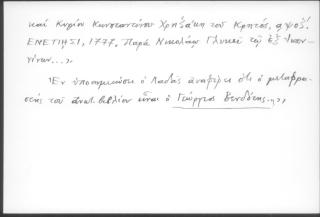 καὶ Κυρίου Κωνσταντίνου τοῦ Κρητός, αψοζ΄.
ΕΝΕΤΙΗΣΙ, 1777. Παρὰ Νικολάῳ Γλυκεῖ τῷ ἐξ Ἰωαν-
νίνων...»,
Ἐν ὑποσημειώσει ὁ Λαδᾶς ἀναφέρει ὅτι ὁ μεταφρα-
στὴς τοῦ βιβλίου εἶναι ὁ Γεώργιος Βενδότης...»,